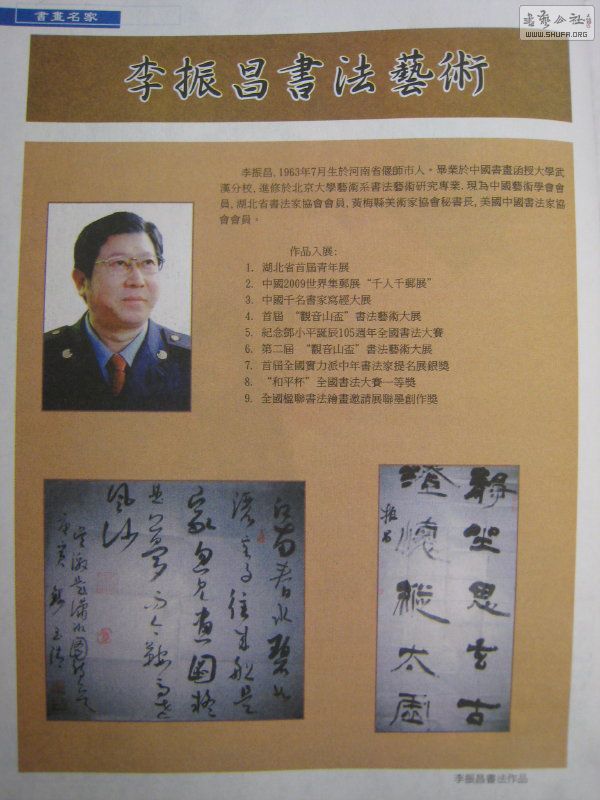 書畫名家
書藝公社
WWW.SHUFA.ORG
李振昌書法藝術
李振昌, 1963年7月生於河南省偃師市人。畢業於中國書畫函授大學武
漢分校, 進修於北京大學藝術系書法藝術研究專業, 現為中國藝術學會會
員, 湖北省書法家協會會員, 黃梅縣美術家協會秘書長, 美國中國書法家協
會會員。
作品入展:
1. 湖北省首屆青年展
2. 中國2009世界集郵展“千人千郵展”
3. 中國千名書家寫經大展
4. 首屆 “觀音山盃” 書法藝術大展
5. 紀念鄧小平誕辰105週年全國書法大賽
6. 第二屆 “觀音山盃” 書法藝術大展
7. 首屆全國實力派中年書法家提名展銀獎
8. “和平杯” 全國書法大賽一等獎
9. 全國楹聯書法繪畫邀請展聯墨創作獎
靜坐思玄古
澄懷縱太虛
振昌
李振昌書法作品